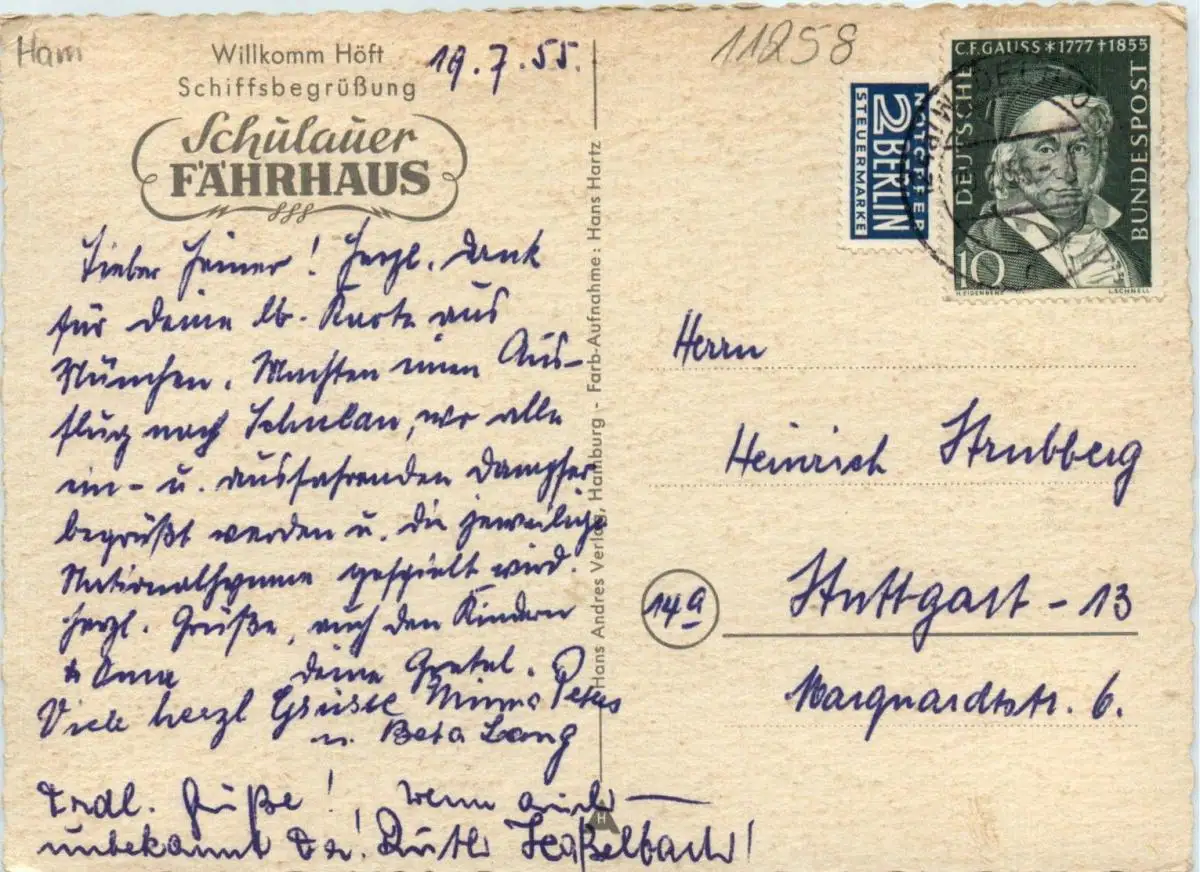 Ham
Willkomm Höft
Schiffsbegrüßung
19.7.55.
Schulauer
FÄHRHAUS
Lieber Heiner! Herzl. Dank
für Deine lb. Karte aus
München. Machten einen Aus-
flug nach Schulau, wo alle
ein- u. ausfahrenden Dampfer
begrüßt werden u. die jeweilige
Nationalhymne gespielt wird.
Herzl. Grüße, auch den Kindern
& Oma Deine Gretel.
Viele herzl Grüsse Peters
u. Beta Lang
Grüße! wenn auch
unbekannt Ruth Haßelbach!
Hans Andres Verlag, Hamburg - Farb-Aufnahme: Hans Hartz
H
11258
NOTOPFER
2 BERLIN
STEUERMARKE
C.F.GAUSS * 1777 † 1855
DEUTSCHE
BUNDESPOST
10
H. EIDENBENZ
L. SCHNELL
Herrn
Heinrich Strubberg
14a
Stuttgart - 13
Marquardtstr. 6.